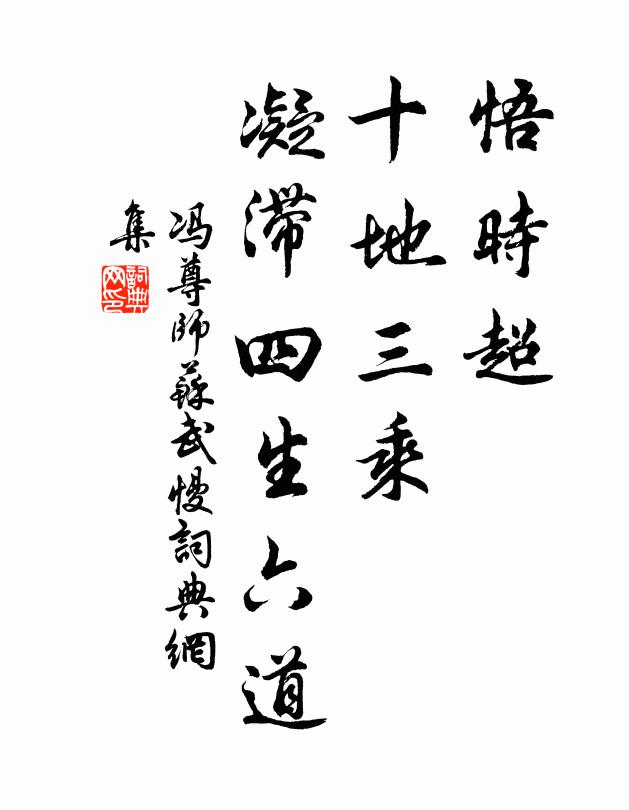 悟時超
十地三乘
凝滯四生六道
冯尊師蘇武慢詞典網
集
詞典网印